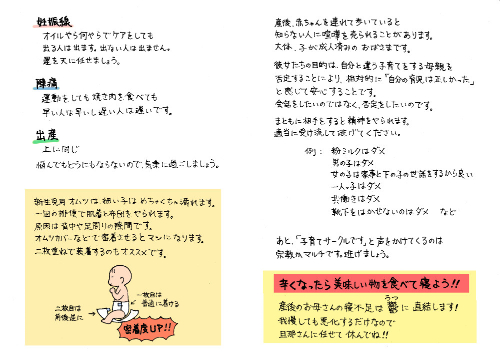 妊娠線
オイルやら何やらでケアをしても
出る人は出ます。出ない人は出ません。
運を天に任せましょう。
陣痛
運動をしても焼き肉を食べても
早い人は早いし遅い人は遅いです。
出産
上に同じ
悩んでもどうにもならないので、気楽に過ごしましょう。
新生児用オムツは、細い子はめちゃくちゃ漏れます。
一回の排便で肌着と布団をやられます。
原因は背中や足周りの隙間です。
オムツカバーなどで密着させるとマシになります。
二枚重ねで装着するのもオススメです。
一枚目は
普通に着ける
二枚目は
前後逆に
密着度UP!!
産後、赤ちゃんを連れて歩いていると
知らない人に喧嘩を売られることがあります。
大体、子が成人済みのおばさまです。
彼女たちの目的は、自分と違う子育てをする母親を
否定することにより、相対的に「自分の育児は正しかった」
と感じて安心することです。
会話をしたいのではなく、否定をしたいのです。
まともに相手をすると精神をやられます。
適当に受け流して逃げてください。
例：粉ミルクはダメ
男の子はダメ
女の子は家事と下の子の世話をするから良い
一人っ子はダメ
共働きはダメ
靴下をはかせないのはダメ　など
あと、「子育てサークルです。」と声をかけてくるのは
宗教かマルチです。逃げましょう。
辛くなったら美味しい物を食べて寝よう!!
産後のお母さんの寝不足は鬱に直結します!
うつ
我慢しても悪化するだけなので
旦那さんに任せて休んでね!!